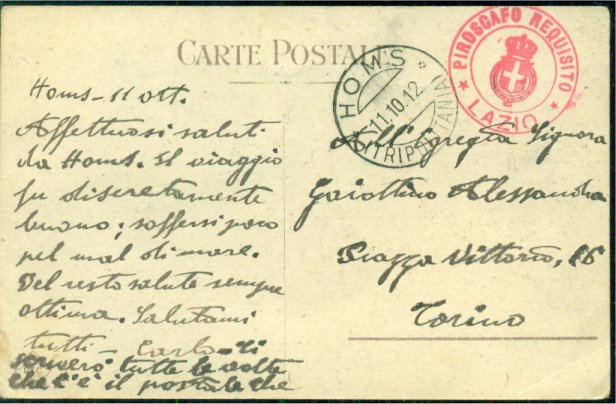 CARTE POSTALE
HOMS
11.10.12
(TRIPOLITANIA)
PIROSCAFO REQUISITO
LAZIO
Homs - 11 ott.
Affettuosi saluti
da Homs. Il viaggio
fu discretamente
buono; soffersi poco
pel mal di mare.
Del resto salute sempre
ottima. Salutami
tutti - Carlo - ti
scriverò tutte le volte
che c'è il postale che
All' Egregia Signora
Gaiottino Alessandra
Piazza Vittorio, 16
Torino